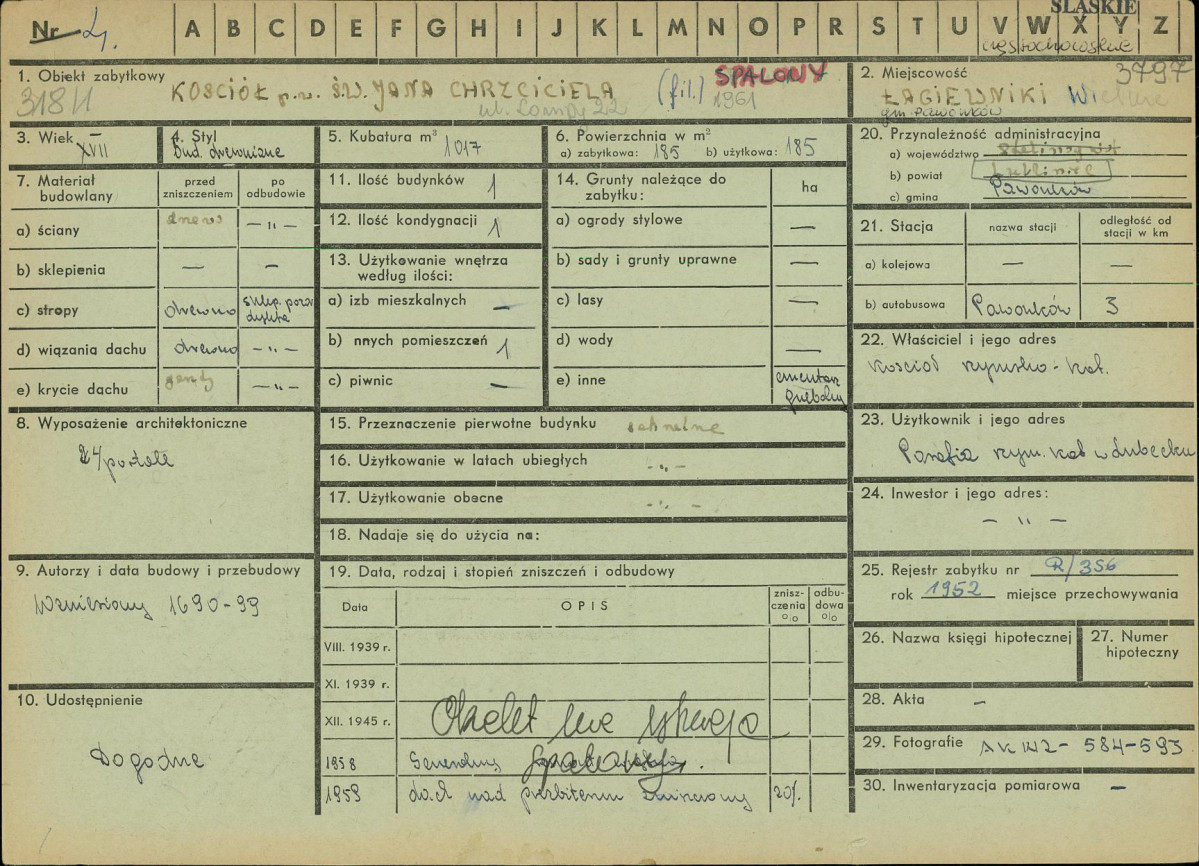 ŚLĄSKIE
Nr 4. A B C D E F G H I J K L M N O P R S T U V W X Y Z
częstochowskie
1. Obiekt zabytkowy
3184 KOŚCIÓŁ p.w. ŚW. JANA CHRZCICIELA (fil.) SPALONY
1961
2. Miejscowość 3797
ŁAGIEWNIKI Wielkie
gm. Pawonków
3. Wiek XVII
4. Styl
Bud. drewniane
5. Kubatura m³ 1017
6. Powierzchnia w m²
a) zabytkowa: 185 b) użytkowa: 185
20. Przynależność administracyjna
a) województwo
b) powiat Lubliniec
c) gmina Pawonków
7. Materiał budowlany
przed zniszczeniem
po odbudowie
a) ściany drewno — „ —
b) sklepienia — —
c) stropy drewno
d) wiązania dachu drewno — „ —
e) krycie dachu gonty — „ —
11. Ilość budynków 1
12. Ilość kondygnacji 1
13. Użytkowanie wnętrza
według ilości:
a) izb mieszkalnych —
b) nnych pomieszczeń 1
c) piwnic —
14. Grunty należące do
zabytku: ha
a) ogrody stylowe —
b) sady i grunty uprawne —
c) lasy —
d) wody —
e) inne cmentarz
grzebalny
21. Stacja nazwa stacji odległość od
stacji w km
a) kolejowa — —
b) autobusowa Pawonków 3
22. Właściciel i jego adres
Kościół rzymsko-kat.
8. Wyposażenie architektoniczne
4 portale
15. Przeznaczenie pierwotne budynku sakralne
16. Użytkowanie w latach ubiegłych - „ -
17. Użytkowanie obecne - „ -
18. Nadaje się do użycia na:
23. Użytkownik i jego adres
Parafia rzym. kat w Lubecku
24. Inwestor i jego adres:
— „ —
9. Autorzy i data budowy i przebudowy
Wzniesiony 1690-99
19. Data, rodzaj i stopień zniszczeń i odbudowy
Data OPIS znisz-
czenia
o/o odbu-
dowa
o/o
VIII. 1939 r.
XI. 1939 r.
XII. 1945 r. Obiekt nie istnieje
1958 Generalny
spalony.
1959 dach nad prezbiterium zniszczony 20%
25. Rejestr zabytku nr R/356
rok 1952 miejsce przechowywania
26. Nazwa księgi hipotecznej
27. Numer
hipoteczny
10. Udostępnienie
Dogodne
28. Akta —
29. Fotografie AKWZ- 584-593
30. Inwentaryzacja pomiarowa —